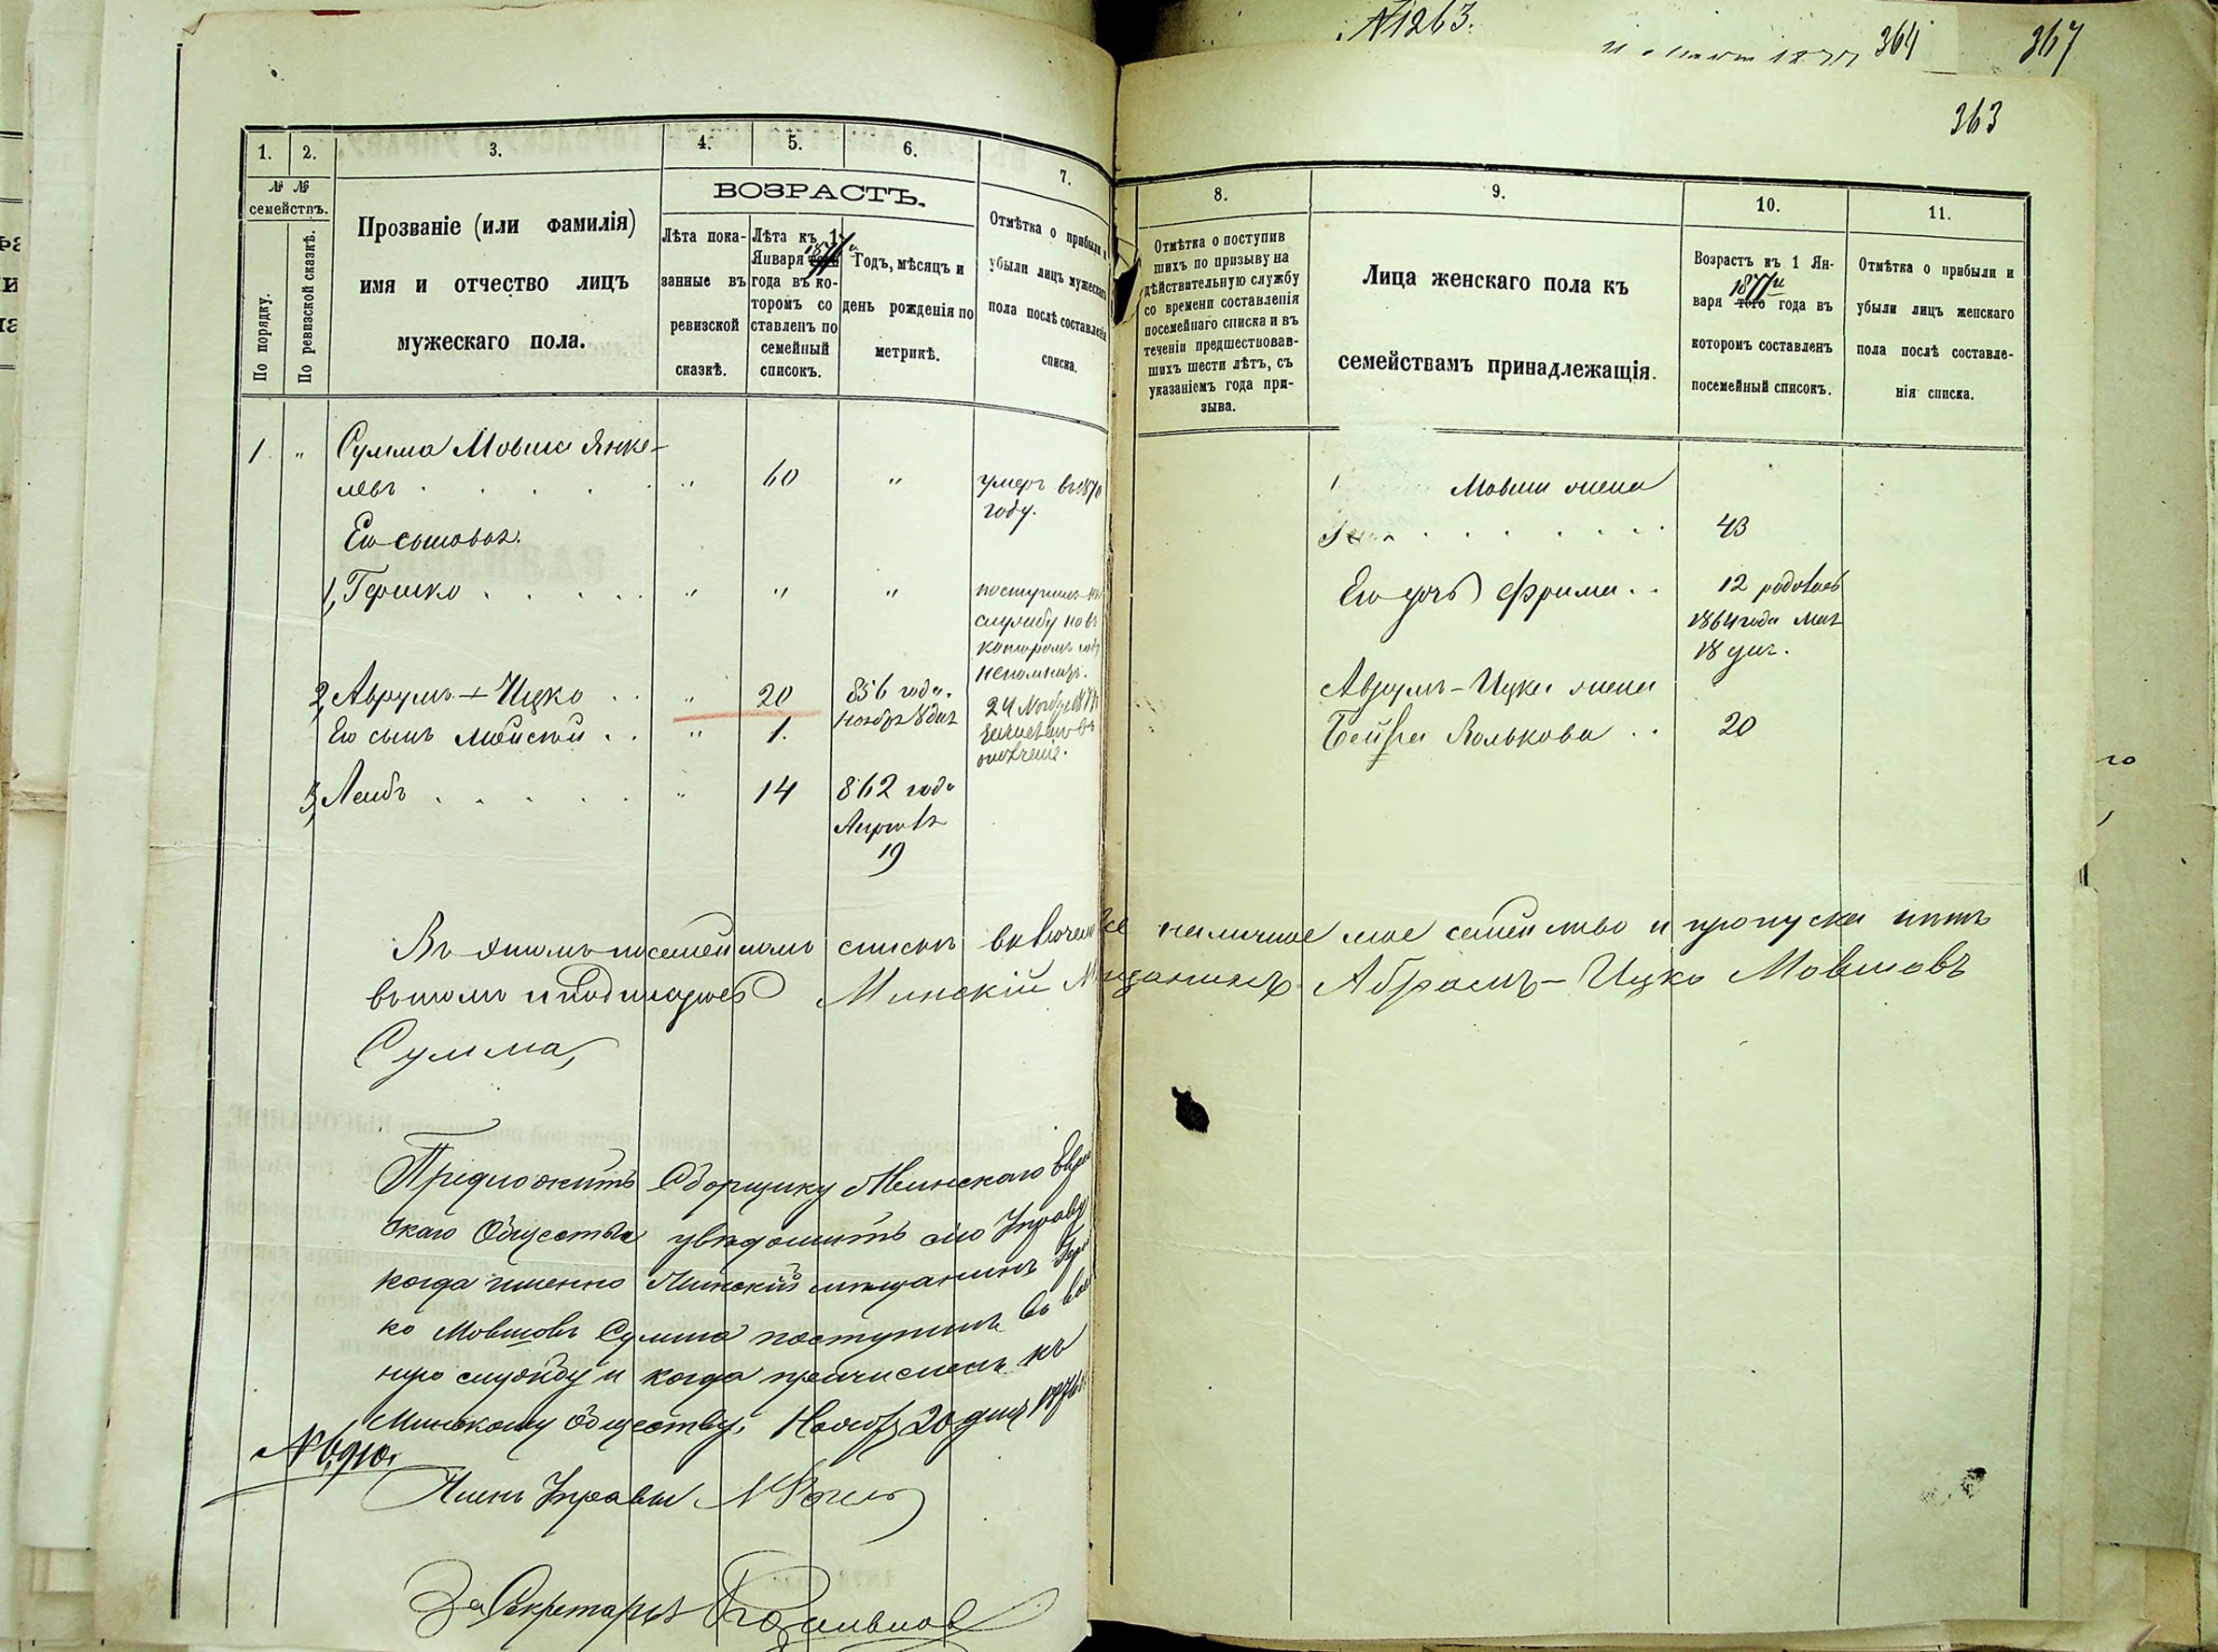 №1263.
364
367
363
1.
2.
3.
4.
5.
6.
7.
№ №
семействъ.
По порядку.
По ревизской сказкѣ.
Прозваніе (или фамилія)
имя и отчество лицъ
мужескаго пола.
ВОЗРАСТЪ.
Лѣта пока-
занные въ
ревизской
сказкѣ.
Лѣта къ 1
Января 1877 того
года въ ко-
торомъ со
ставленъ по
семейный
списокъ.
Годъ, мѣсяцъ и
день рожденія по
метрикѣ.
Отмѣтка о прибыли и
убыли лицъ мужескаго
пола послѣ составленія
списка.
8.
9.
10.
11.
Отмѣтка о поступив
шихъ по призыву на
дѣйствительную службу
со времени составленія
посемейнаго списка и въ
теченіи предшествовав-
шихъ шести лѣтъ, съ
указаніемъ года при-
зыва.
Лица женскаго пола къ
семействамъ принадлежащія.
Возрастъ къ 1 Ян-
варя 1877 того года въ
которомъ составленъ
посемейный списокъ.
Отмѣтка о прибыли и
убыли лицъ женскаго
пола послѣ составле-
нія списка.
1 " Сулима Мовша Янке-
левъ " 60 " умеръ въ 1870
году.
Его сыновья.
1, Гершко " " " поступилъ на
службу но въ
которомъ году
непомнитъ.
2, Аврумъ-Ицко " 20 856 года.
Ноября 8 дня
Его сынъ " 1.
24 Ноября
3, Лейбъ " 14 862 года
Апрѣля
19
Мовши жена
43
Его дочь Фрима 12 родовась
1864 года Мая
18 дня.
Аврумъ-Ицки жена
Бейля Волькова 20
Въ этомъ посемейномъ списки включено все наличное мое семейство и пропуска нѣтъ
въ томъ и подписуюсь Минскій Мѣщанинъ Абрамъ-Ицко Мовшовъ
Сулима,
Предложить Сборщику Минскаго Еврей
скаго Общества увѣдомить сію Управу
когда именно Минскій мѣщанинъ Герш
ко Мовшовъ Сулима поступилъ въ воен
ную службу и когда причисленъ къ
Минскому обществу, Ноября 20 дня 1876
№ 6910.
Членъ Управы
За Секретаря